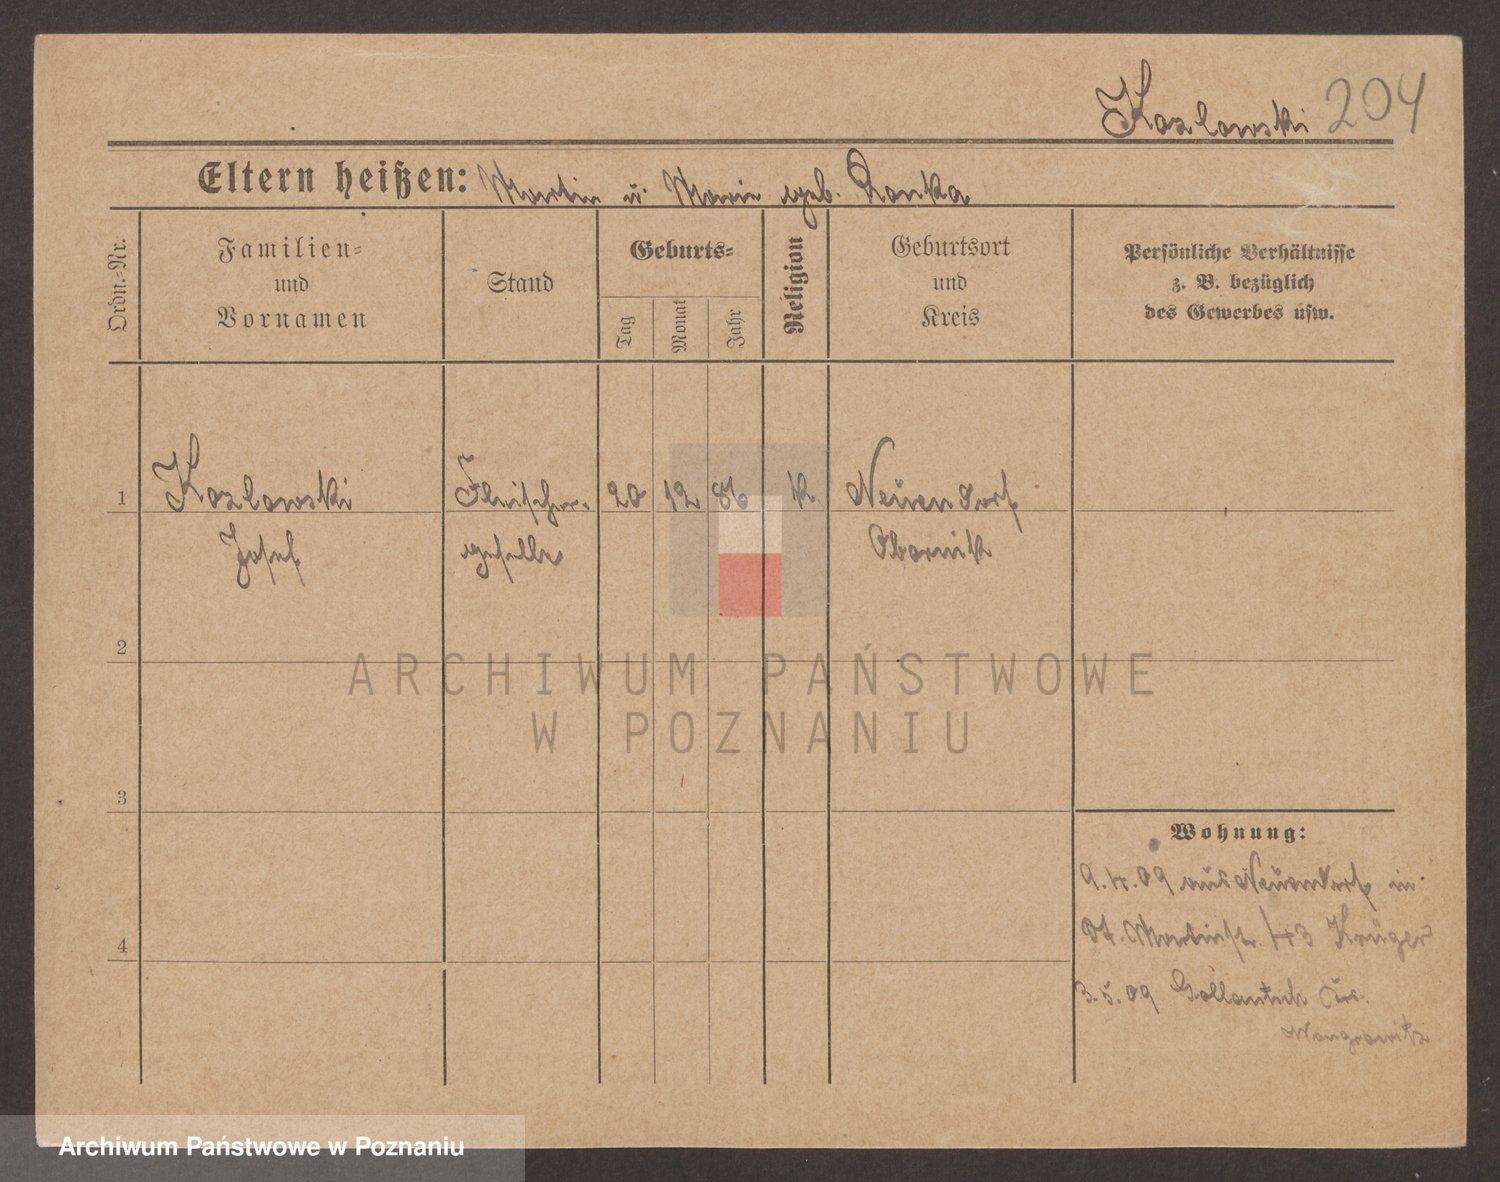 Kozlowski 204
Eltern heißen: Martin u. Marie geb. Lonka
Ordn.-Nr.
Familien-
und
Vornamen
Stand
Geburts-
Tag
Monat
Jahr
Religion
Geburtsort
und
Kreis
Persönliche Verhältnisse
z. B. bezüglich
des Gewerbes usw.
1 Kozlowski Fleischer- 20 12 86 k. Neuendorf
Josef geselle Obornik
2
3
4
Wohnung:
9.4.09 aus Neuendorf in
St. Martinstr. 43 Krüger
3.5.09 Gollantsch Krs.
Wongrowitz
ARCHIWUM PAŃSTWOWE
W POZNANIU
Archiwum Państwowe w Poznaniu